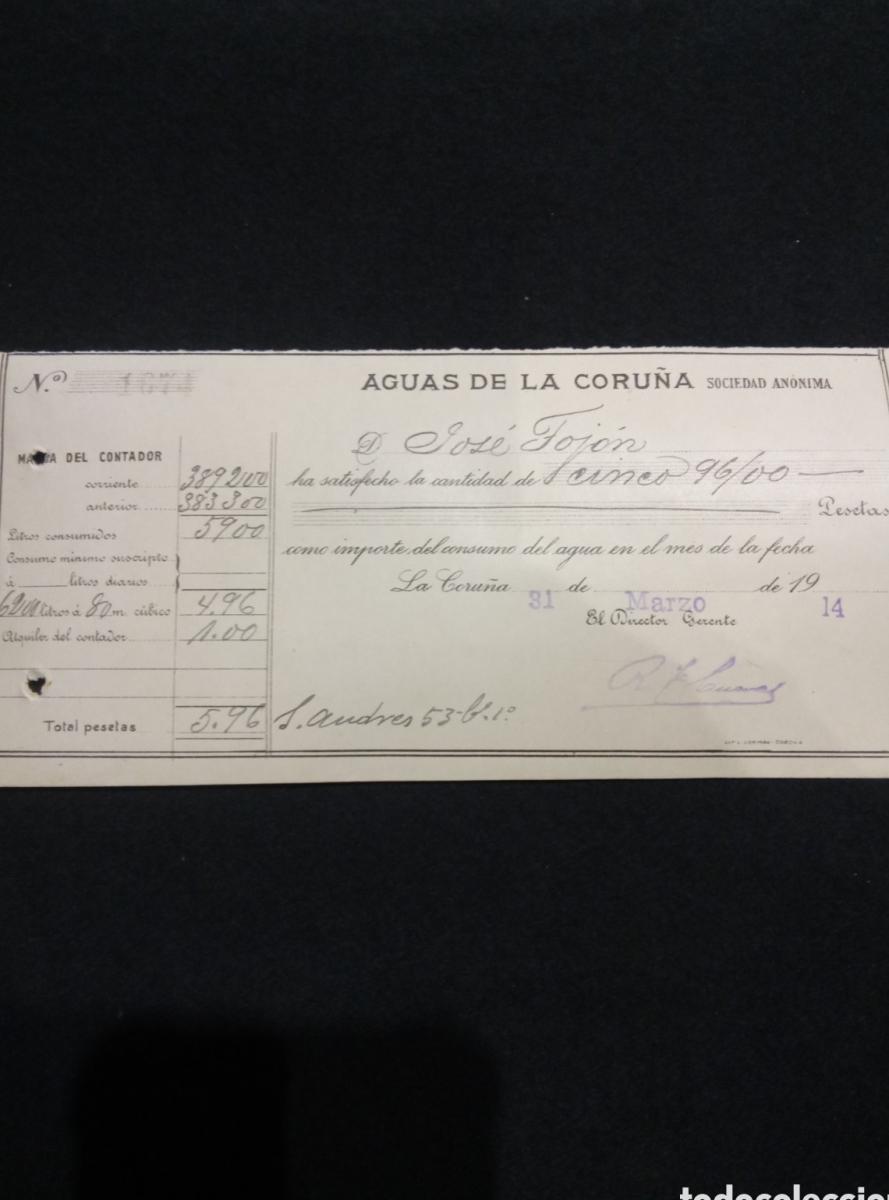 N.º 1674
AGUAS DE LA CORUÑA SOCIEDAD ANÓNIMA
D José Fojón
ha satisfecho la cantidad de cinco 96/00
Pesetas
como importe del consumo del agua en el mes de la fecha
La Coruña 31 de Marzo de 19 14
El Director Gerente
S. Andres 53-B.1º
DEL CONTADOR
corriente 389200
anterior 383300
Litros consumidos 5900
Consumo mínimo suscripto
á litros diarios
6200 litros á 80 m. cúbico 4.96
Alquiler del contador 1.00
Total pesetas 5.96
todocoleccion